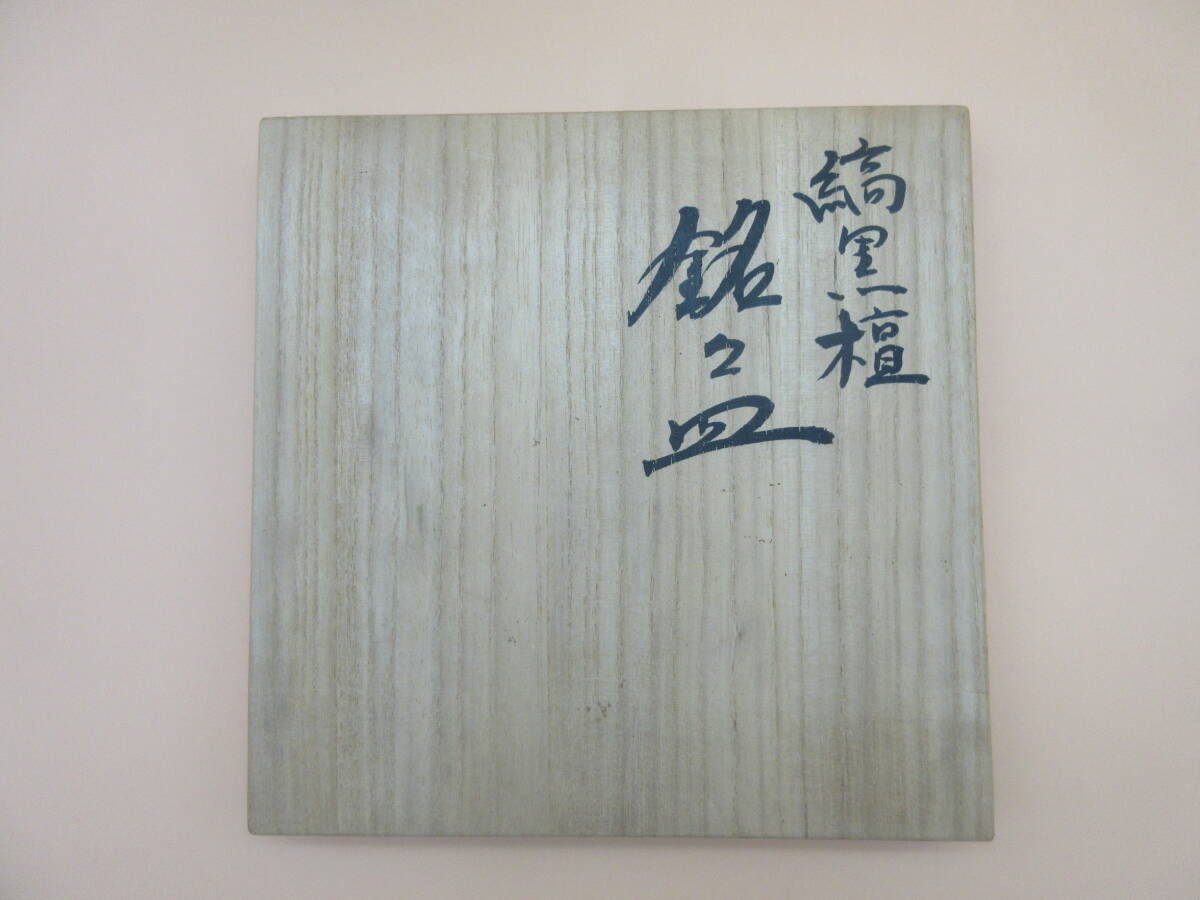 縞黒檀
銘々皿